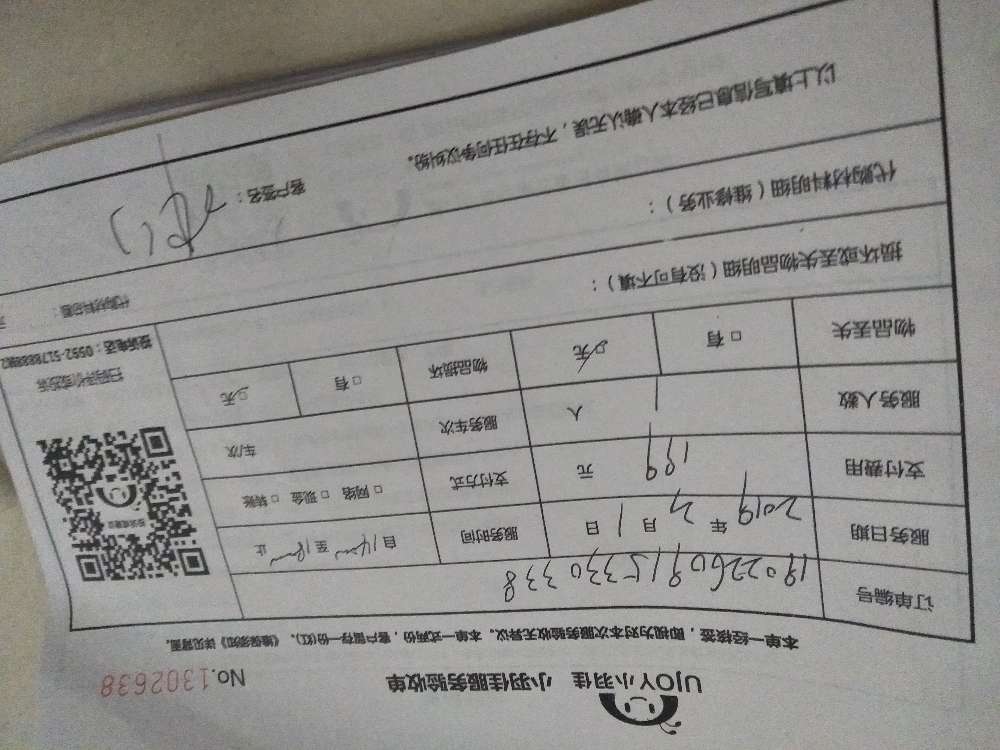 UJOY小羽佳 小羽佳服务验收单 No.1302638
本单一经核签，即视为对本次服务验收无异议。本单一式两份，客户留存一份(红)、《维保须知》详见背面。
订单编号 190226091533033 8
服务日期 2019 年 3 月 1 日 服务时间 自 14:00 至 18:00 止
支付费用 199 元 支付方式 □ 网络 □ 现金 □ 转账
服务人数 1 人 服务车次 车/次
物品丢失 □ 有 □ 无 物品损坏 □ 有 □ 无
投诉或建议
扫码评价或投诉
损坏或丢失物品明细（没有可不填）：
代购材料明细（维修业务）：
代购材料总额： 元
以上填写信息已经本人确认无误，不存在任何争议纠纷。
客户签名：